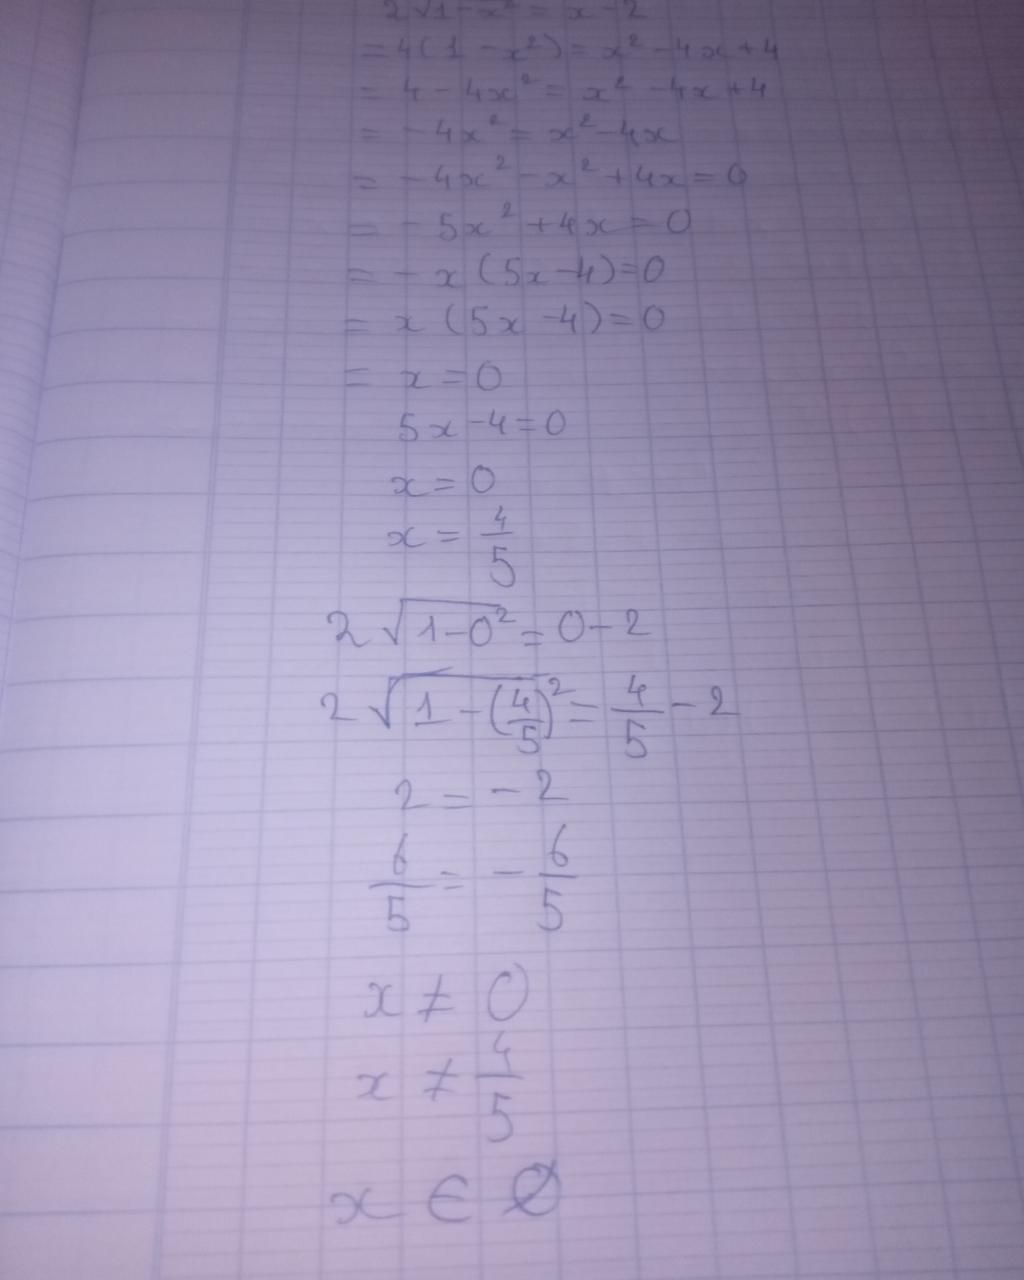 2√1-x² = x-2
= 4(1-x²) = x²-4x+4
= 4-4x² = x²-4x+4
= -4x² = x²-4x
= -4x²-x²+4x=0
= -5x²+4x=0
= -x(5x-4)=0
= x(5x-4)=0
= x=0
5x-4=0
x=0
x=4/5
2√1-0² = 0-2
2√1-(4/5)² = 4/5-2
2=-2
6/5=-6/5
x≠0
x≠4/5
x∈Ø